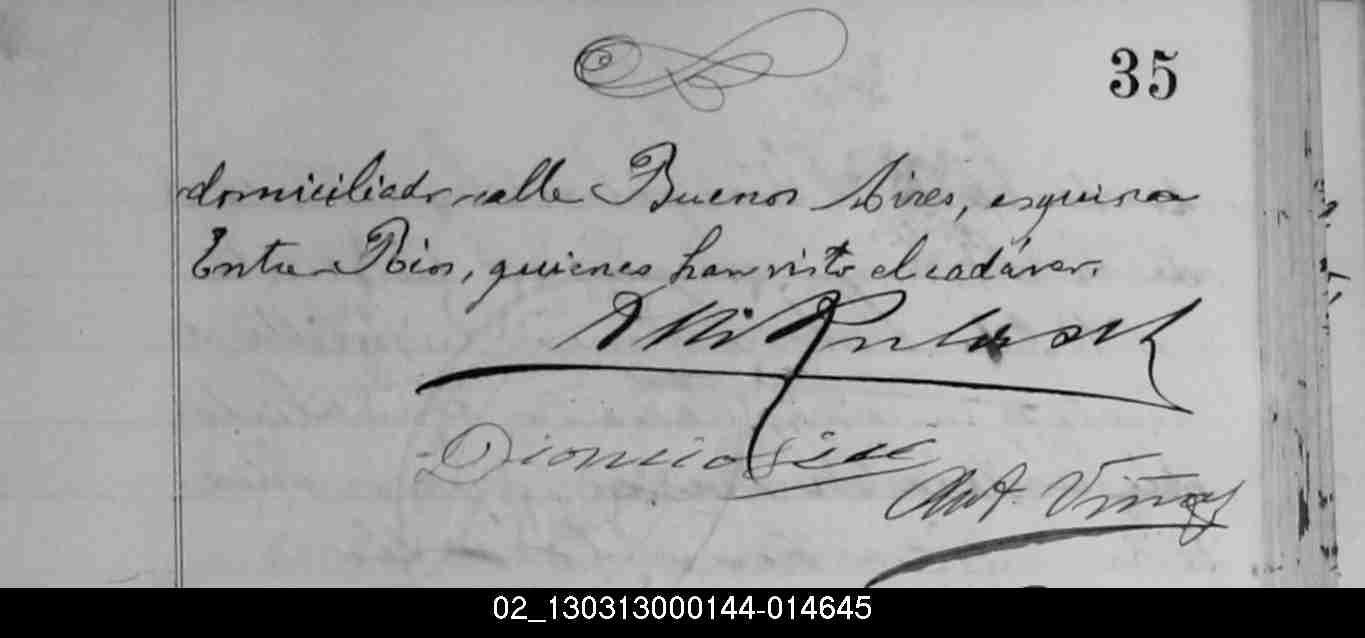 35
domiciliado calle Buenos Aires, esquina
Entre Rios, quienes han visto el cadáver.
Dionicio
Ant. Viñas
02_130313000144-014645